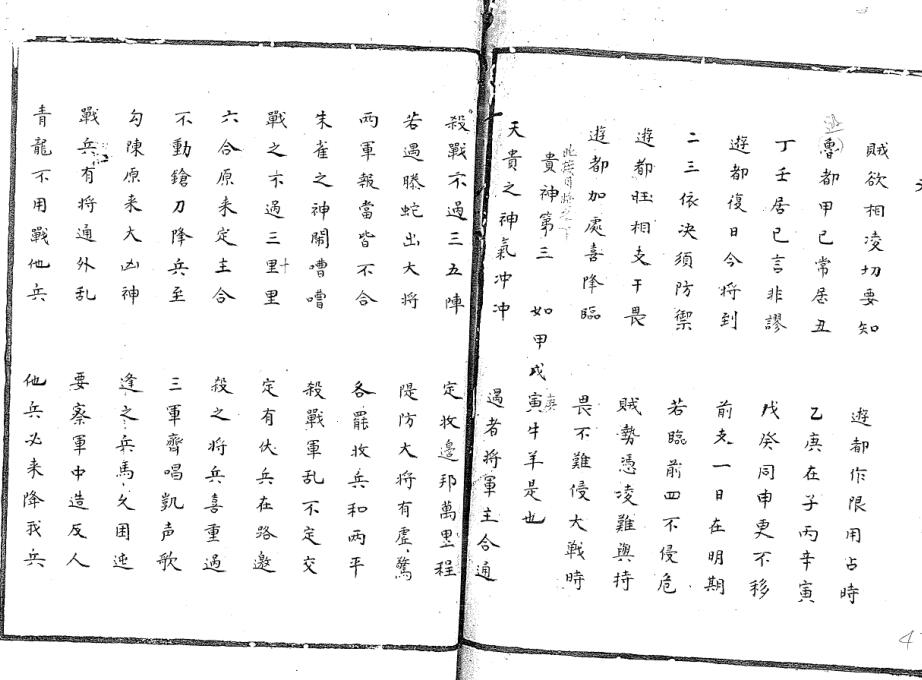 賊欲相凌切要知 遊都作限用占時
魯都甲己常居丑 乙庚在子丙辛寅
丁壬居巳言非謬 戊癸同申更不移
遊都復日今將到 前支一日在明期
二三依决須防禦 若臨前四不侵危
遊都旺相支干畏 賊勢憑凌難與持
遊都加處喜降臨 畏不難侵大戰時
貴神第三 如甲戊寅牛羊是也
天貴之神氣冲冲 遇者將軍主合通
殺戰不過三五陣 定收邊邦萬里程
若遇螣蛇出大將 隄防大將有虛驚
两軍報當皆不合 各罷收兵和两平
朱雀之神鬧嘈嘈 殺戰軍乱不定交
戰之不過三里里 定有伏兵在路邀
六合原来定主合 殺之將兵喜重過
不動鎗刀降兵至 三軍齊唱凱声歌
勾陳原来大凶神 逢之兵馬欠困迍
戰兵有將通外乱 要察軍中造反人
青龍不用戰他兵 他兵必来降我兵
4